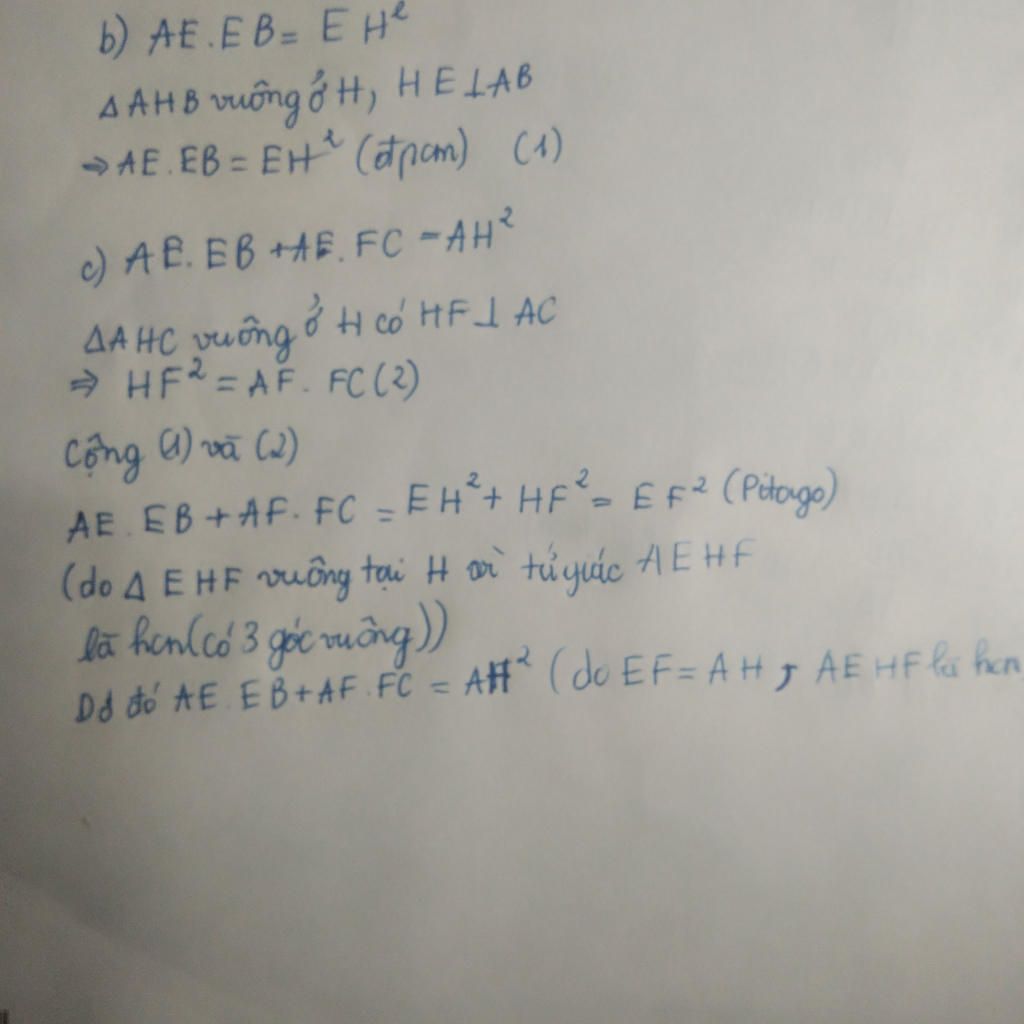 b) AE.EB = EH²
ΔAHB vuông ở H, HE⊥AB
⇒ AE.EB = EH² (đpcm) (1)
c) AE.EB + AE.FC = AH²
ΔAHC vuông ở H có HF⊥AC
⇒ HF² = AF.FC (2)
Cộng (1) và (2)
AE.EB + AF.FC = EH² + HF² = EF² (Pitago)
(do Δ EHF vuông tại H vì tứ giác AEHF
là hcn (có 3 góc vuông))
Do đó AE.EB + AF.FC = AH² (do EF = AH, AEHF là hcn)